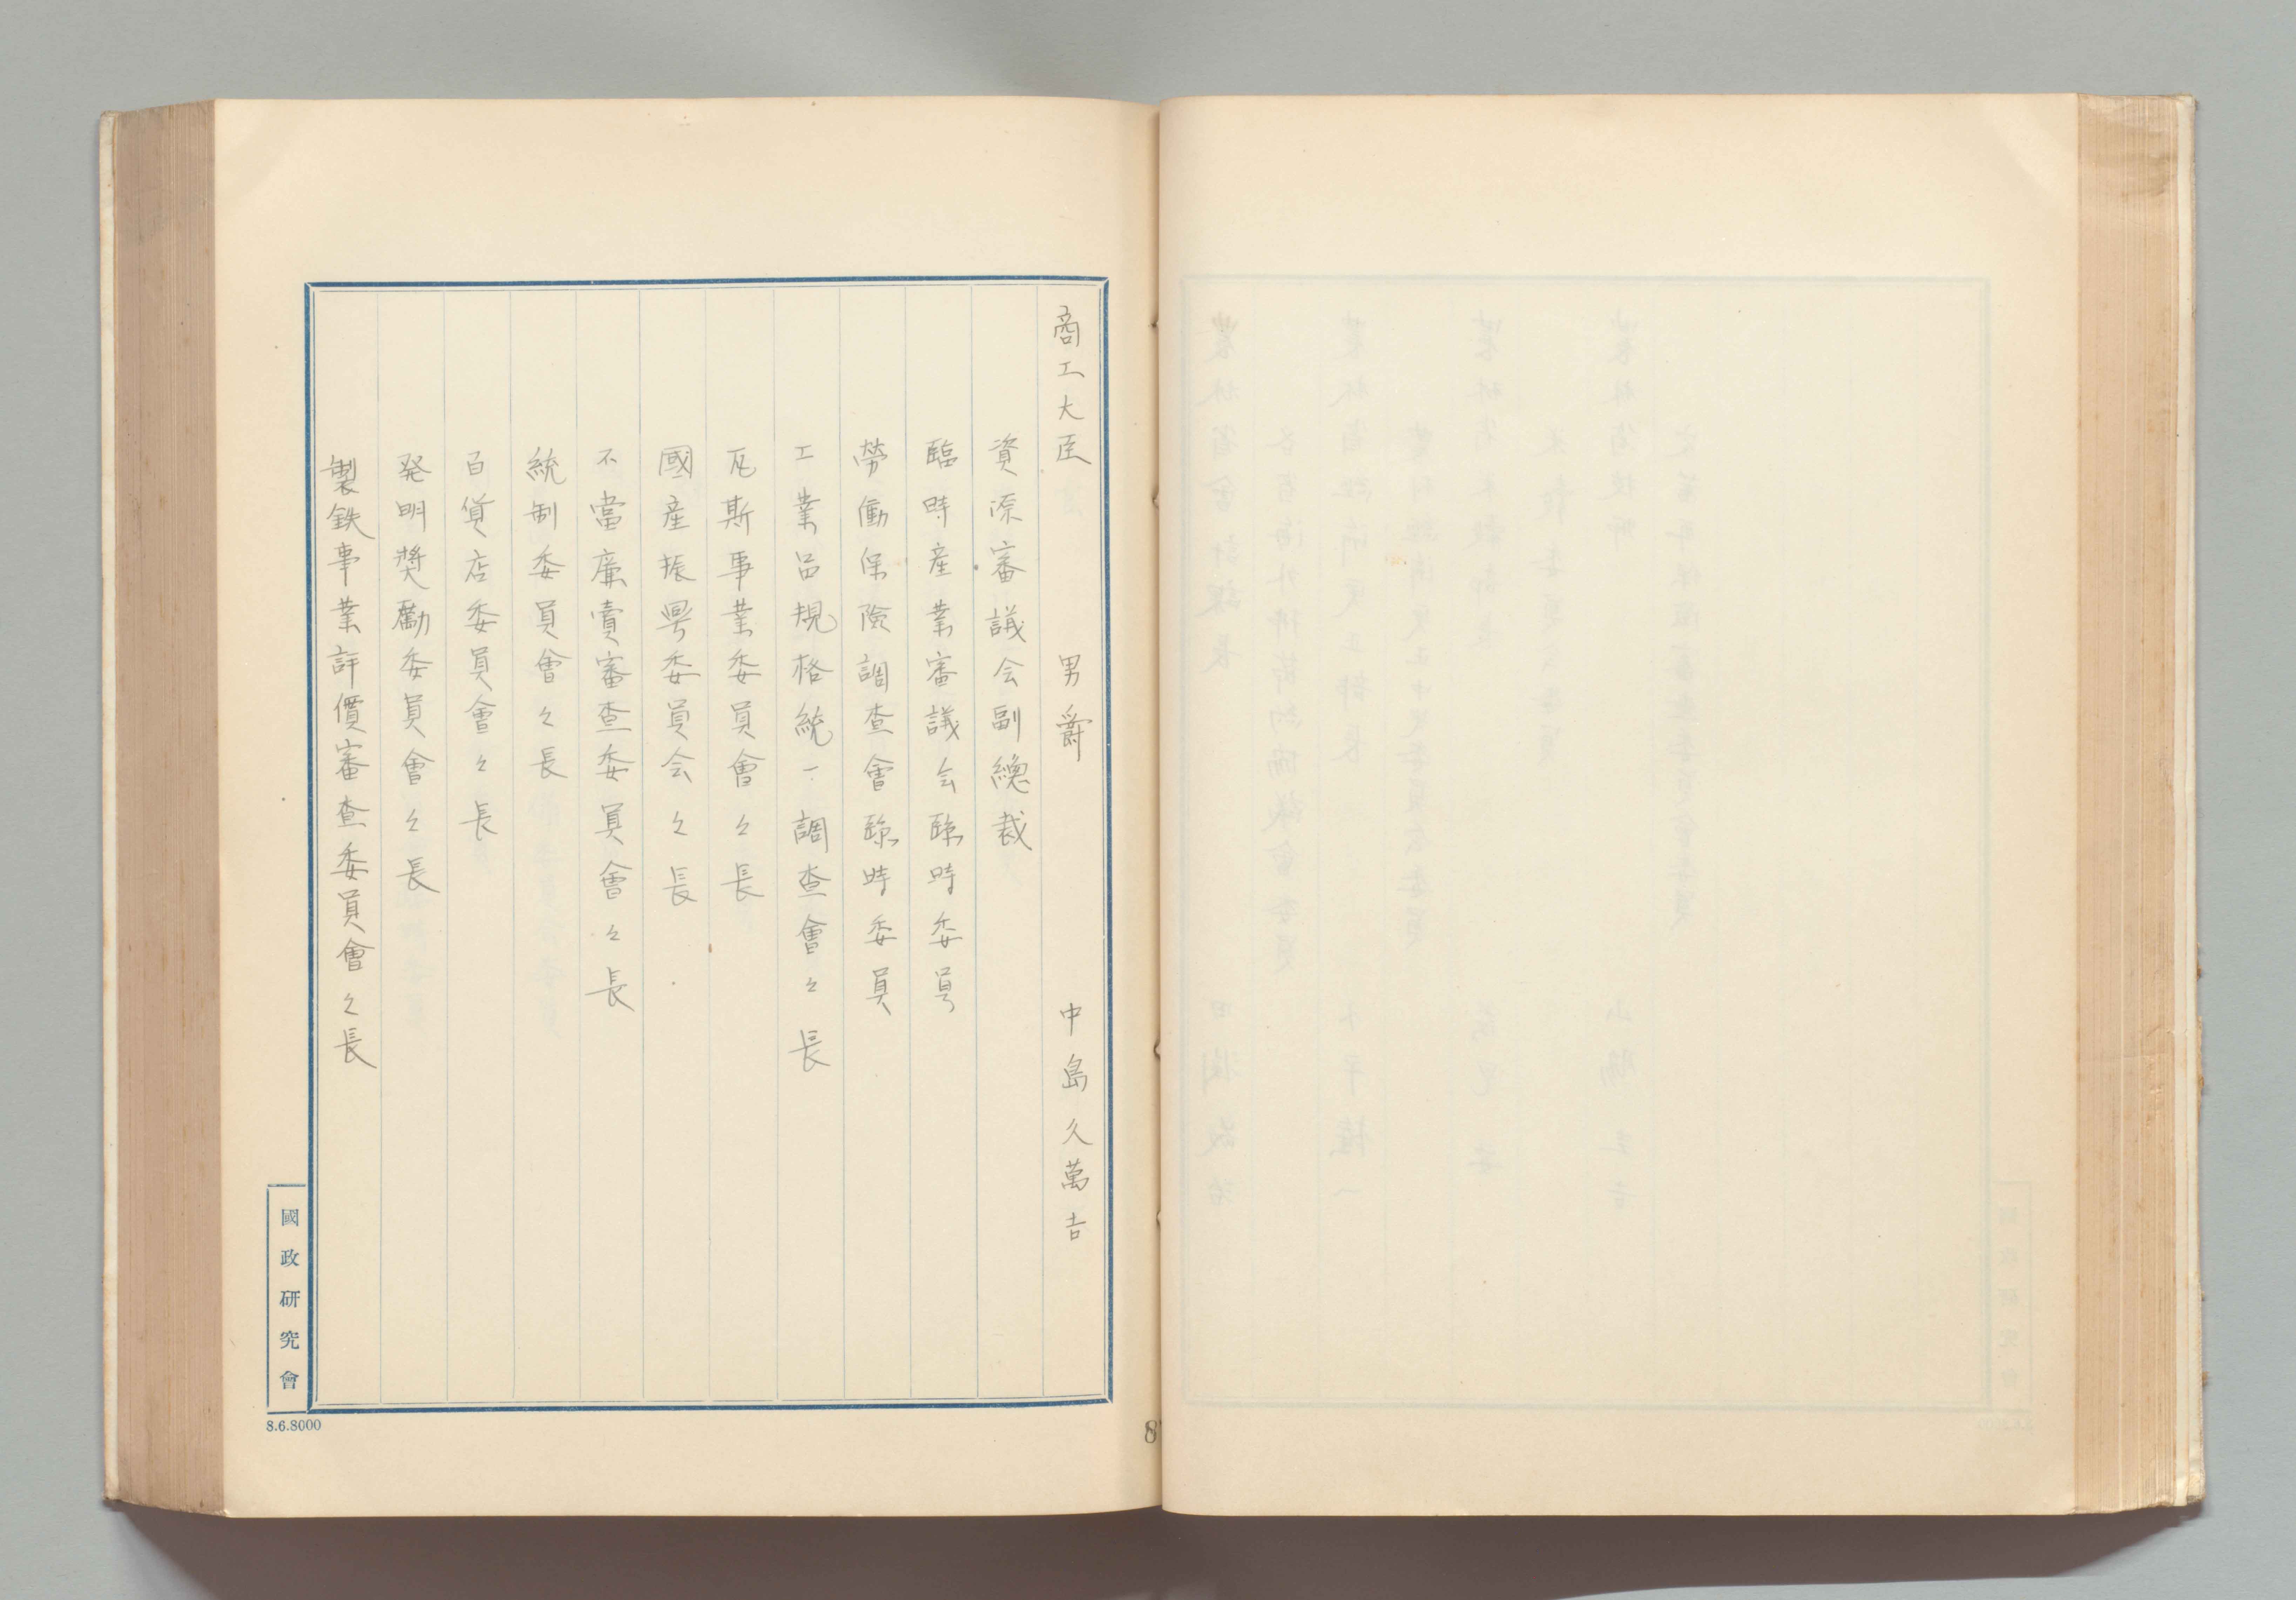 商工大臣 男爵 中島久萬吉
資源審議会副總裁
臨時産業審議会臨時委員
勞働保險調査會臨時委員
工業品規格統一調査會々長
瓦斯事業委員會々長
國産振興委員会々長
不當廉賣審査委員會々長
統制委員會々長
百貨店委員會々長
発明奬勵委員會々長
製鉄事業評價審査委員會々長
國政研究會
8.6.8000